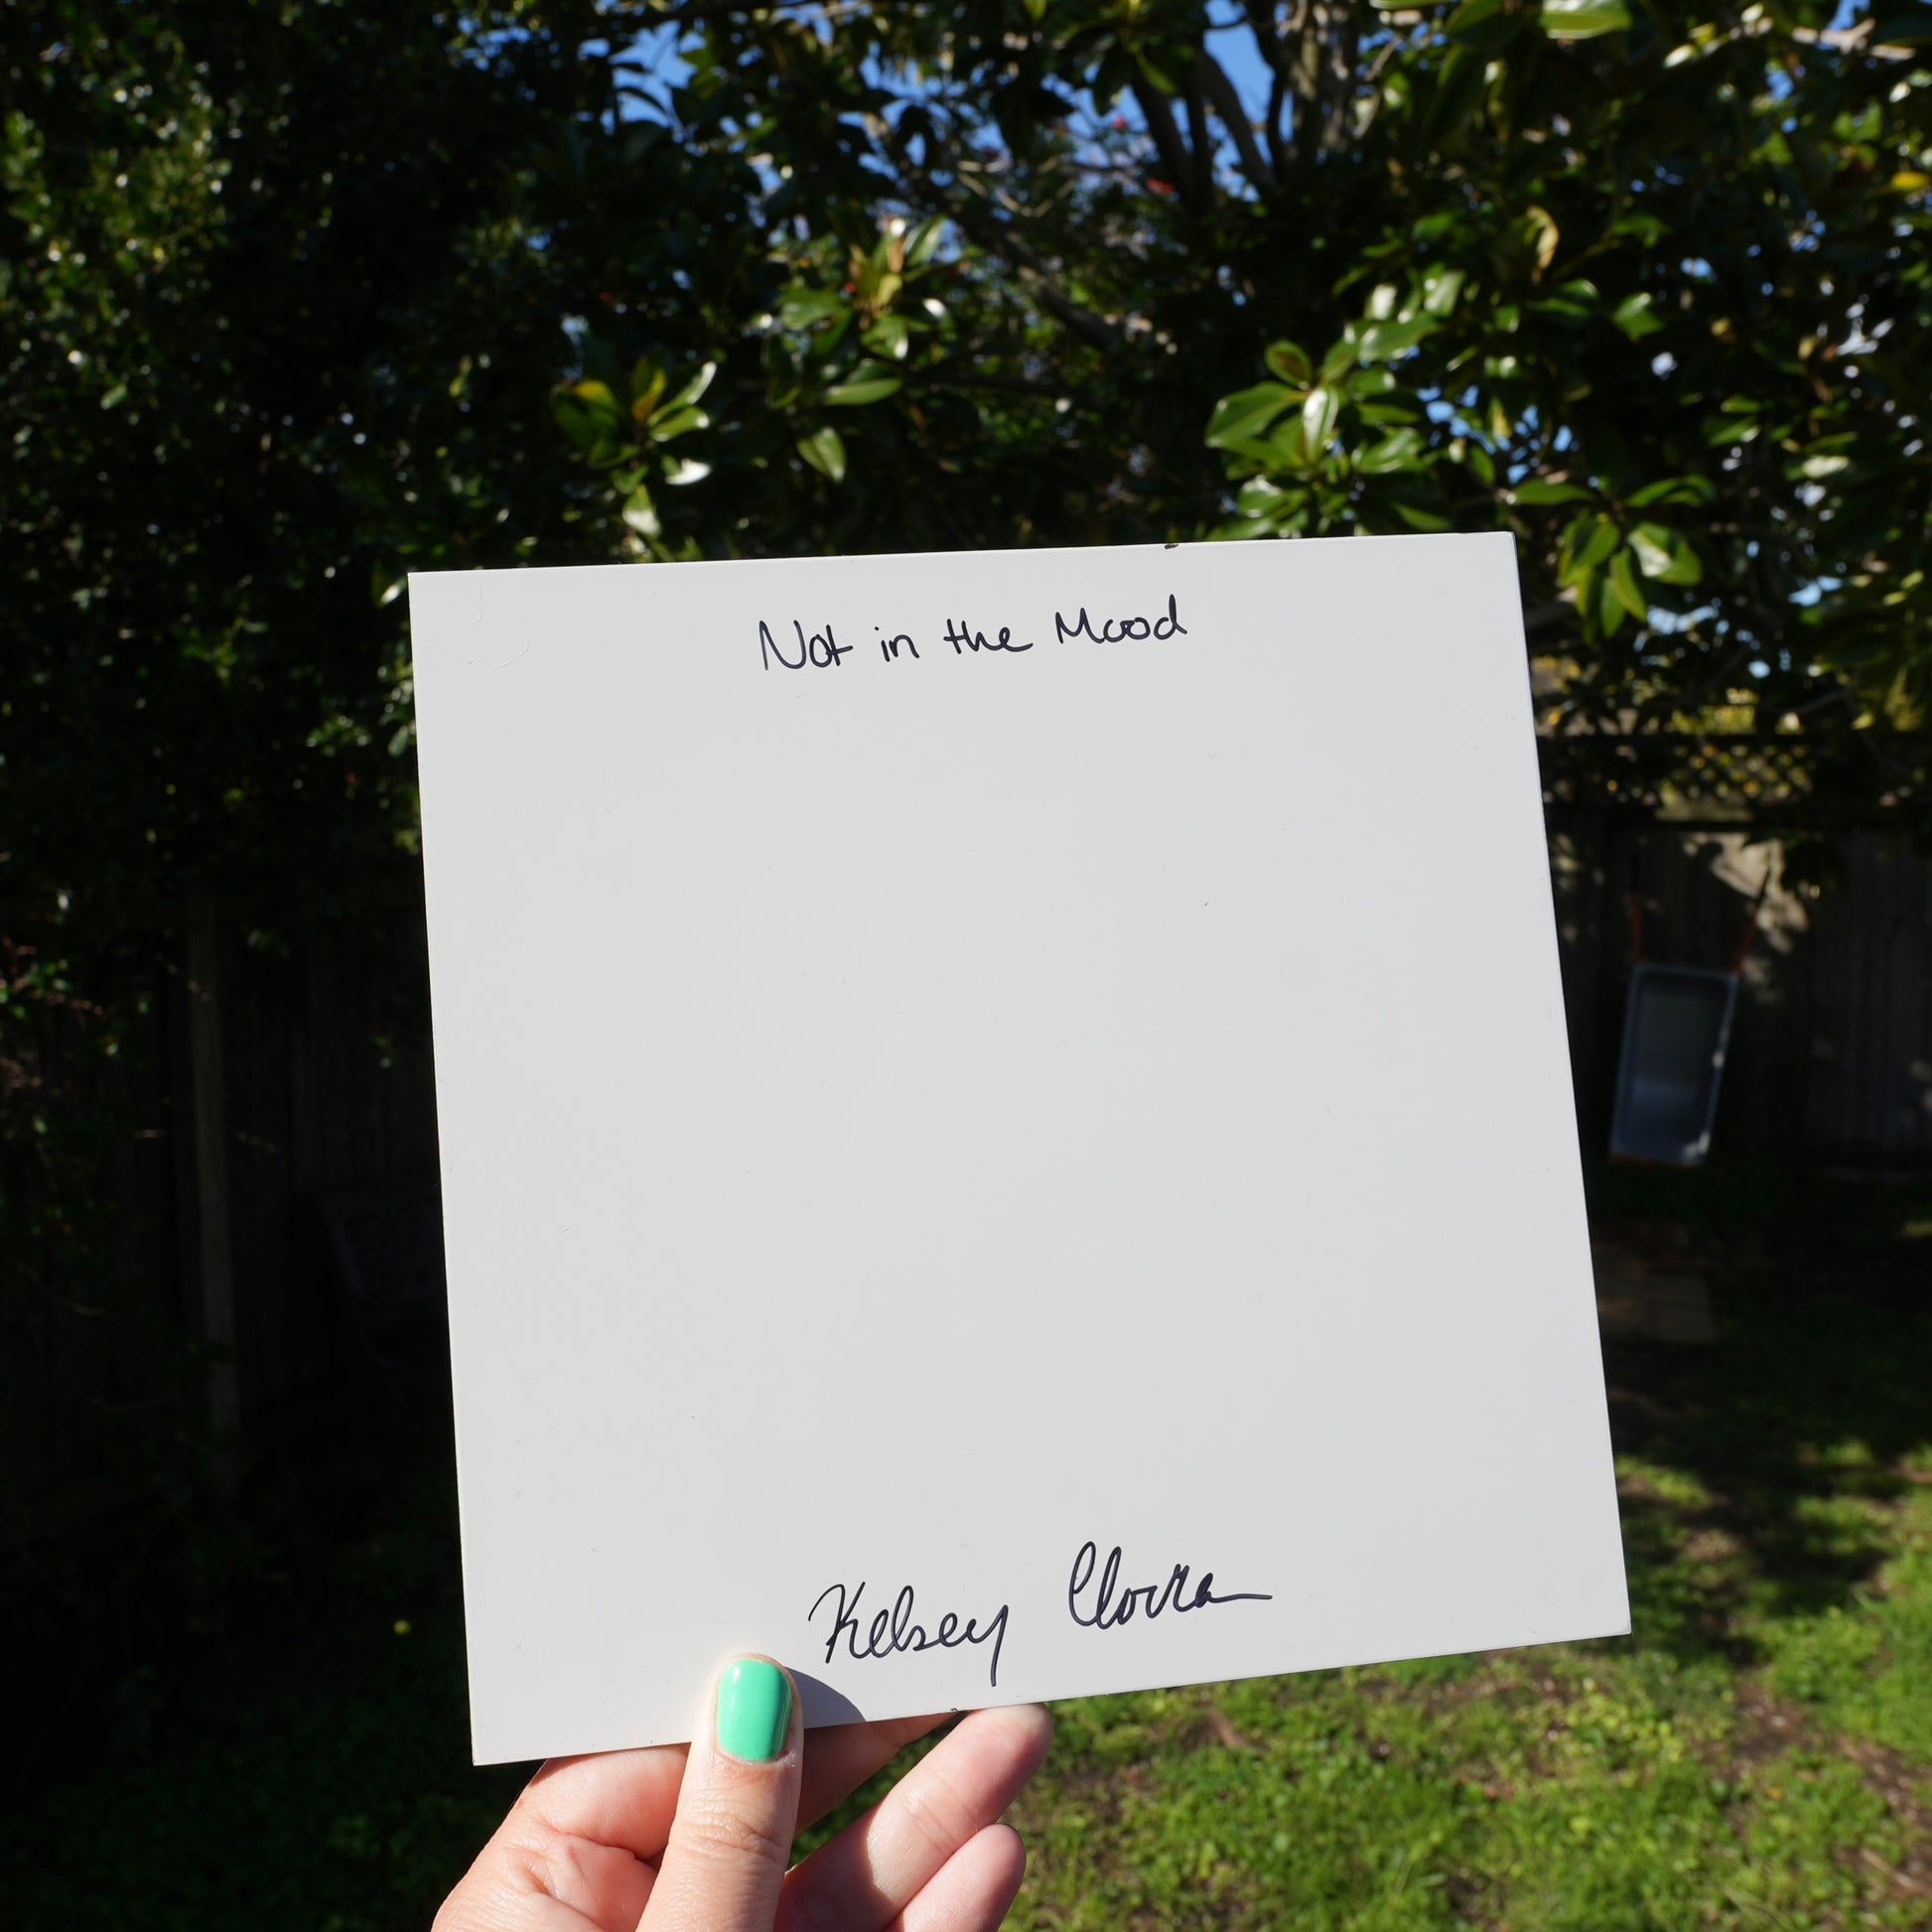 Not in the Mood
Kelsey